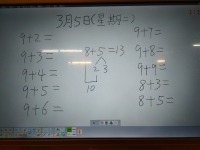 3月5日(星期二)
9+2=
9+3=
9+4=
9+5=
9+6=
8+5=13
2 3
10
9+7=
9+8=
9+9=
8+3=
8+5=